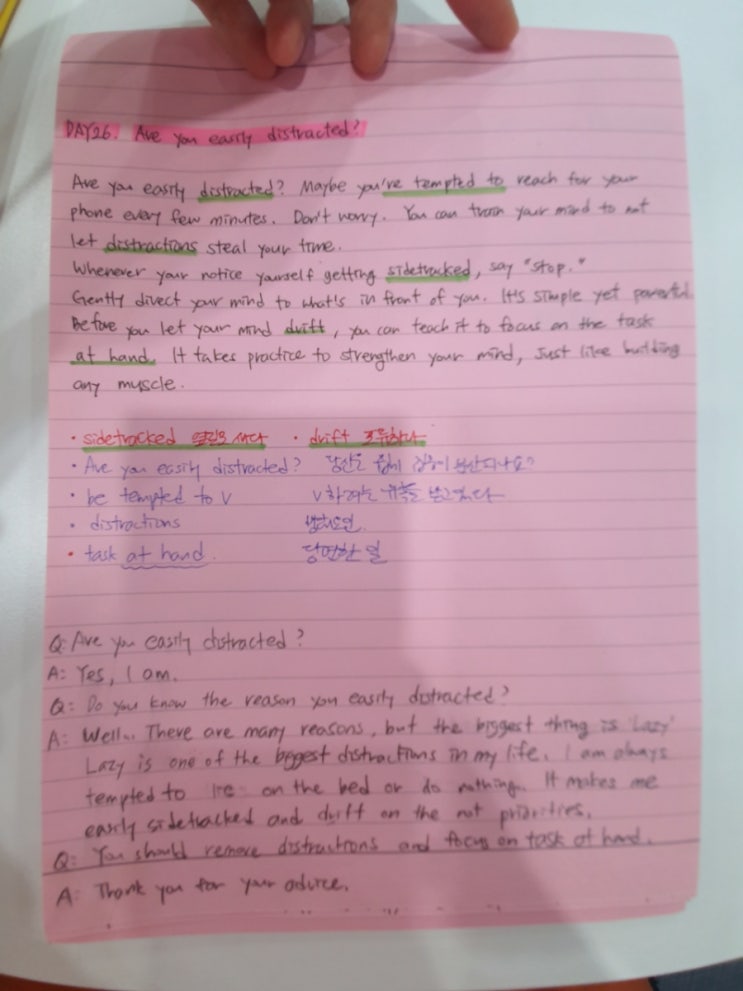 DAY26. Are you easily distracted?
Are you easily distracted? Maybe you're tempted to reach for your
phone every few minutes. Don't worry. You can train your mind to not
let distractions steal your time.
Whenever your notice yourself getting sidetracked, say "stop."
Gently divect your mind to what's in front of you. It's simple yet powerful.
Before you let your mind drift, you can teach it to focus on the task
at hand. It takes practice to strengthen your mind, Just like building
any muscle.
· sidetracked 옆길로 새다 · drift 표류하다
· Are you easily distracted? 당신은 쉽게 집중이 분산되나요?
· be tempted to V V하려는 유혹을 받고있다
· distractions 방해요인
· task at hand. 당면한 일
Q: Are you easily distracted?
A: Yes, I am.
Q: Do you know the reason you easily distracted?
A: Well.. There are many reasons, but the biggest thing is 'Lazy'
Lazy is one of the biggest distractions in my life. I am always
tempted to lie on the bed or do nothing. It makes me
easily sidetracked and drift on the not priorities.
Q: You should remove distractions and focus on task at hand.
A: Thank you for your advice.